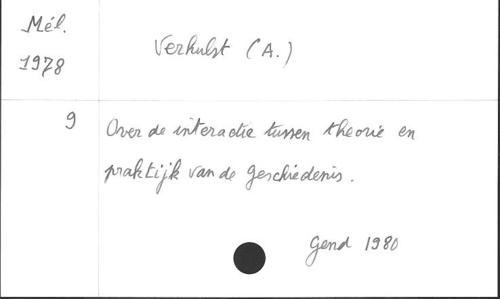 Mél.
1978
Verhulst (A.)
9
Over de interactie tussen theorie en
praktijk van de geschiedenis.
Gend 1980